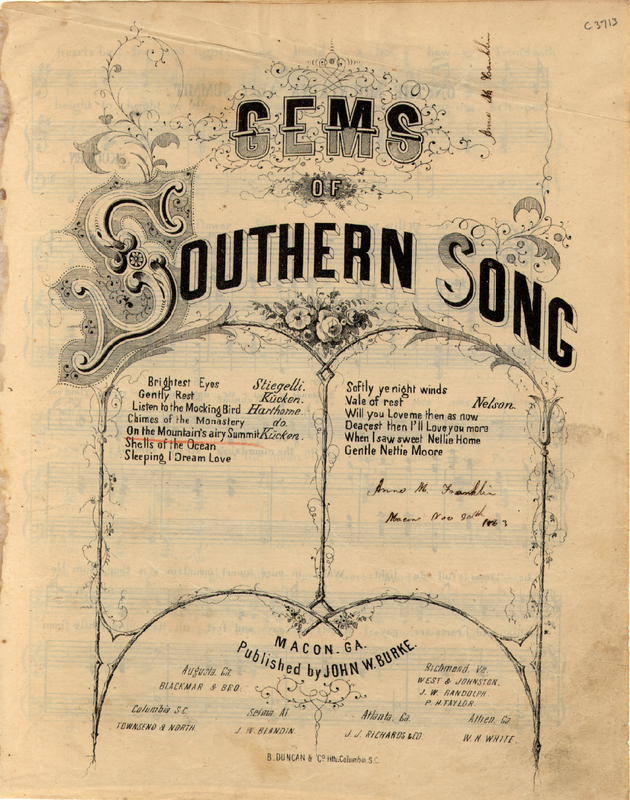 C3713
Anne M Franklin
GEMS
OF
SOUTHERN SONG
Brightest Eyes Stiegelli.
Gently Rest Kücken.
Listen to the Mocking Bird Harthorne.
Chimes of the Monastery do.
On the Mountain's airy Summit Kücken.
Shells of the Ocean
Sleeping I Dream Love
Softly ye night winds
Vale of rest Nelson.
Will you Love me then as now
Dearest then I'll Love you more
When I saw sweet Nellie Home
Gentle Nettie Moore
Anne M. Franklin
Macon Nov 20th 1863
MACON. GA.
Published by JOHN W. BURKE.
Augusta, Ga.
BLACKMAR & BRO.
Richmond, Va.
WEST & JOHNSTON.
J. W. RANDOLPH.
P. H. TAYLOR.
Columbia S.C.
TOWNSEND & NORTH.
Selma, Al
J. W. BLANDIN.
Atlanta, Ga.
J. J. RICHARDS & CO.
Athen, Ga.
W. N. WHITE.
B. DUNCAN & Co. lith. Columbia, S.C.